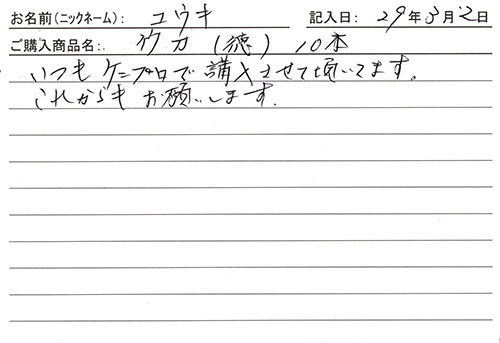 お名前(ニックネーム): ユウキ 記入日: 29年3月2日
ご購入商品名: 竹刀(徳) 10本
いつもケンブロで講入させて頂いてます。
これからもお願いします.